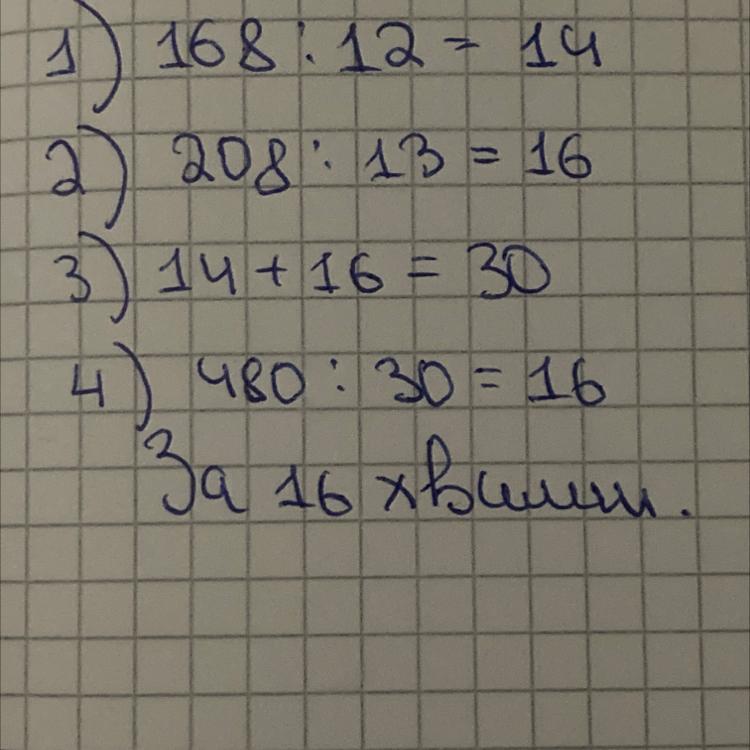 1) 168 : 12 = 14
2) 208 : 13 = 16
3) 14 + 16 = 30
4) 480 : 30 = 16
За 16 хвилин.